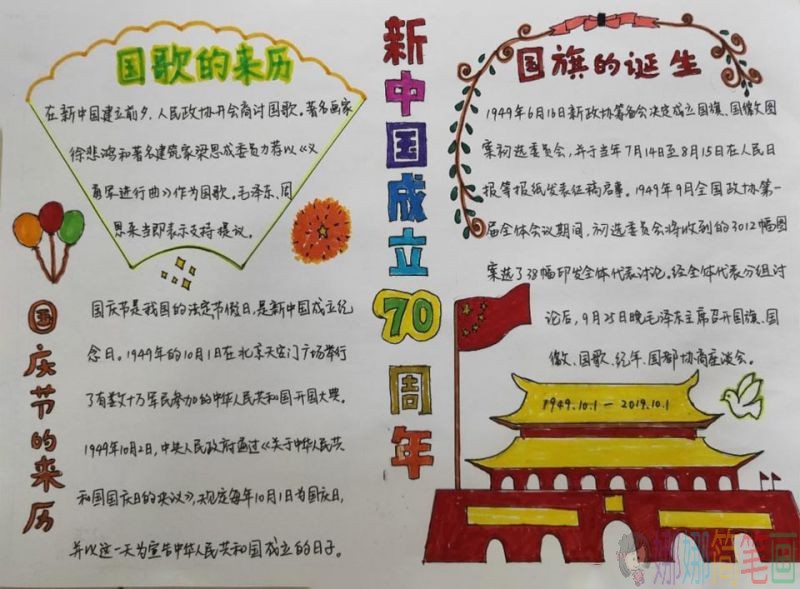 国歌的来历
在新中国建立前夕，人民政协开会商讨国歌。著名画家
徐悲鸿和著名建筑家梁思成委员力荐以《义
勇军进行曲》作为国歌。毛泽东、周
恩来当即表示支持提议。
国庆节的来历
国庆节是我国的法定节假日，是新中国成立纪
念日。1949年的10月1日在北京天安门广场举行
了有数十万军民参加的中华人民共和国开国大典。
1949年10月2日，中央人民政府通过《关于中华人民共
和国国庆日的决议》，规定每年10月1日为国庆日，
并以这一天为宣告中华人民共和国成立的日子。
新中国成立70周年
国旗的诞生
1949年6月16日新政协筹备会决定成立国旗、国徽文图
案初选委员会，并于当年7月14日至8月15日在人民日
报等报纸发表征稿启事。1949年9月全国政协第一
届全体会议期间，初选委员会将收到的3012幅图
案选了38幅印发全体代表讨论。经全体代表分组讨
论后，9月25日晚毛泽东主席召开国旗、国
徽、国歌、纪年、国都协商座谈会。
1949.10.1－2019.10.1
娜娜简笔画